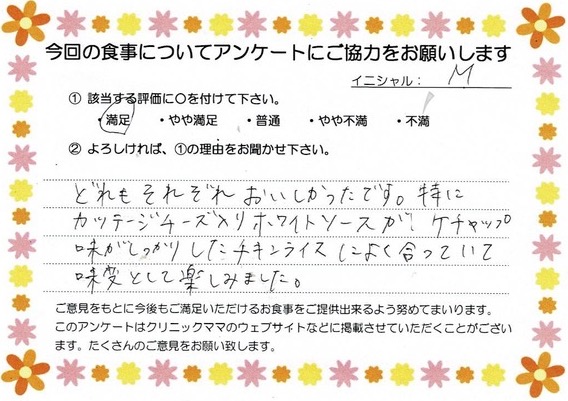 今回の食事についてアンケートにご協力をお願いします
イニシャル： M
① 該当する評価に○を付けて下さい。
・満足 ・やや満足 ・普通 ・やや不満 ・不満
② よろしければ、①の理由をお聞かせ下さい。
どれもそれぞれおいしかったです。特に
カッテージチーズ入りホワイトソースが、ケチャップ
味がしっかりしたチキンライスによく合っていて
味変として楽しみました。
ご意見をもとに今後もご満足いただけるお食事をご提供出来るよう努めてまいります。
このアンケートはクリニックママのウェブサイトなどに掲載させていただくことがござい
ます。たくさんのご意見をお願い致します。